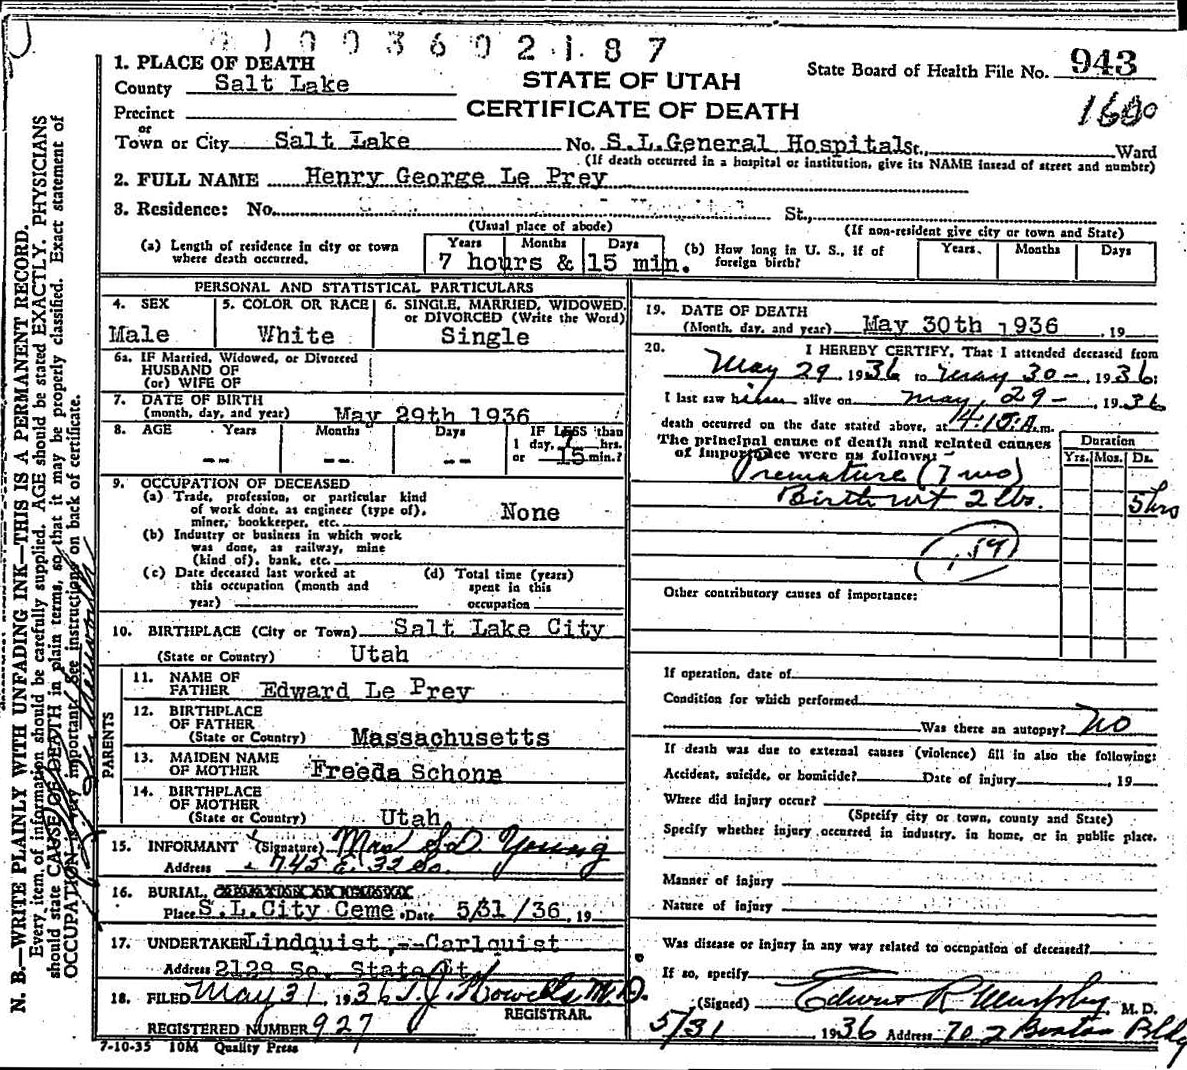 4 1 0 0 3 6 0 2 1 8 7
STATE OF UTAH
CERTIFICATE OF DEATH
State Board of Health File No. 943
1. PLACE OF DEATH
County Salt Lake
Precinct
or
Town or City Salt Lake No. S.L. General Hospital St., Ward
(If death occurred in a hospital or institution, give its NAME instead of street and number)
2. FULL NAME Henry George Le Prey
3. Residence: No. St.,
(Usual place of abode) (If non-resident give city or town and State)
(a) Length of residence in city or town where death occurred. Years Months Days
7 hours & 15 min.
(b) How long in U. S., if of foreign birth? Years. Months Days
PERSONAL AND STATISTICAL PARTICULARS
4. SEX Male
5. COLOR OR RACE White
6. SINGLE, MARRIED, WIDOWED, or DIVORCED (Write the Word) Single
6a. IF Married, Widowed, or Divorced
HUSBAND OF
(or) WIFE OF
7. DATE OF BIRTH
(month, day, and year) May 29th 1936
8. AGE Years Months Days IF LESS than
-- -- -- 1 day, 7 hrs.
or 15 min.?
9. OCCUPATION OF DECEASED
(a) Trade, profession, or particular kind
of work done, as engineer (type of),
miner, bookkeeper, etc. None
(b) Industry or business in which work
was done, as railway, mine
(kind of), bank, etc.
(c) Date deceased last worked at
this occupation (month and
year)
(d) Total time (years)
spent in this
occupation
10. BIRTHPLACE (City or Town) Salt Lake City
(State or Country) Utah
PARENTS
11. NAME OF
FATHER Edward Le Prey
12. BIRTHPLACE
OF FATHER
(State or Country) Massachusetts
13. MAIDEN NAME
OF MOTHER Freeda Schone
14. BIRTHPLACE
OF MOTHER
(State or Country) Utah
15. INFORMANT (Signature) Mrs S.D. Young
Address 745 E. 32 So.
16. BURIAL,
Place S.L. City Ceme. Date 5/31/36, 19
17. UNDERTAKER Lindquist -- Carlquist
Address 2129 So. State St.
18. FILED May 31 1936 T. J. Howells M.D.
REGISTRAR.
REGISTERED NUMBER 927
7-10-35 10M Quality Press
19. DATE OF DEATH
(Month, day, and year) May 30th 1936, 19
20. I HEREBY CERTIFY, That I attended deceased from
May 29 1936 to May 30- 1936;
I last saw him alive on May, 29- 1936
death occurred on the date stated above, at 4:15 A.m.
The principal cause of death and related causes
of importance were as follows:
Duration
Yrs. Mos. Ds.
Premature (7 mo)
Birth wt 2 lbs. 5 hrs
159
Other contributory causes of importance:
If operation, date of
Condition for which performed
Was there an autopsy? No
If death was due to external causes (violence) fill in also the following:
Accident, suicide, or homicide? Date of injury , 19
Where did injury occur?
(Specify city or town, county and State)
Specify whether injury occurred in industry, in home, or in public place.
Manner of injury
Nature of injury
Was disease or injury in any way related to occupation of deceased?
If so, specify
(Signed) Edwin R Murphy M. D.
5/31, 1936 Address 702 Boston Bldg
N. B.—WRITE PLAINLY WITH UNFADING INK—THIS IS A PERMANENT RECORD.
Every item of information should be carefully supplied. AGE should be stated EXACTLY. PHYSICIANS
should state CAUSE OF DEATH in plain terms, so that it may be properly classified. Exact statement of
OCCUPATION is very important. See instructions on back of certificate.